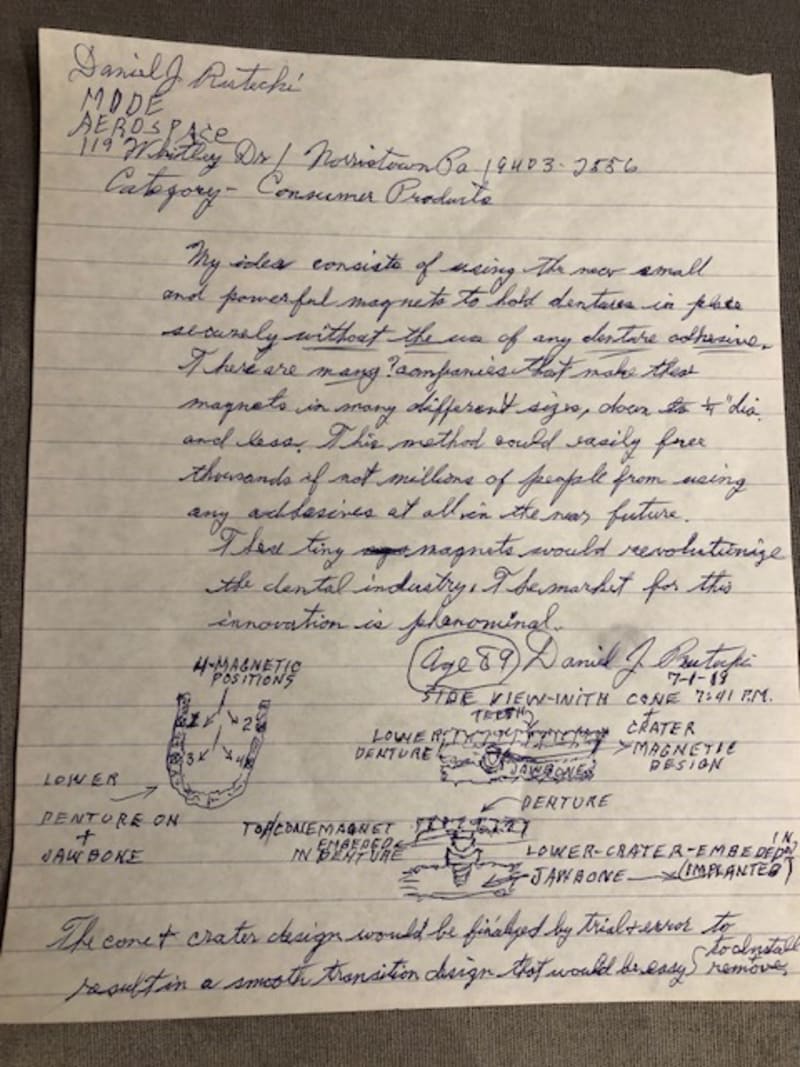 Daniel J. Rutecki
MODE
AEROSPACE
119 Whitley Dr / Norristown Pa 19403-2556
Category - Consumer Products
My idea consists of using the new small
and powerful magnets to hold dentures in place
securely without the use of any denture adhesive.
There are many? companies that make these
magnets in many different sizes, down to 1/4" dia.
and less. This method could easily free
thousands if not millions of people from using
any adhesives at all in the near future.
These tiny magnets would revolutionize
the dental industry. The market for this
innovation is phenominal.
Age 89 Daniel J. Rutecki
7-1-19
7:41 P.M.
4-MAGNETIC
POSITIONS
1 2
3 4
LOWER
DENTURE ON
+
JAWBONE
SIDE VIEW-WITH CONE
+
CRATER
MAGNETIC
DESIGN
TEETH
LOWER
DENTURE
JAWBONE
DENTURE
TOP/CONE MAGNET
EMBEDED
IN DENTURE
LOWER-CRATER-EMBEDED IN
JAWBONE (IMPLANTED)
The cone + crater design would be finalyed by trial + error to
result in a smooth transition design that would be easy { to install
remove,